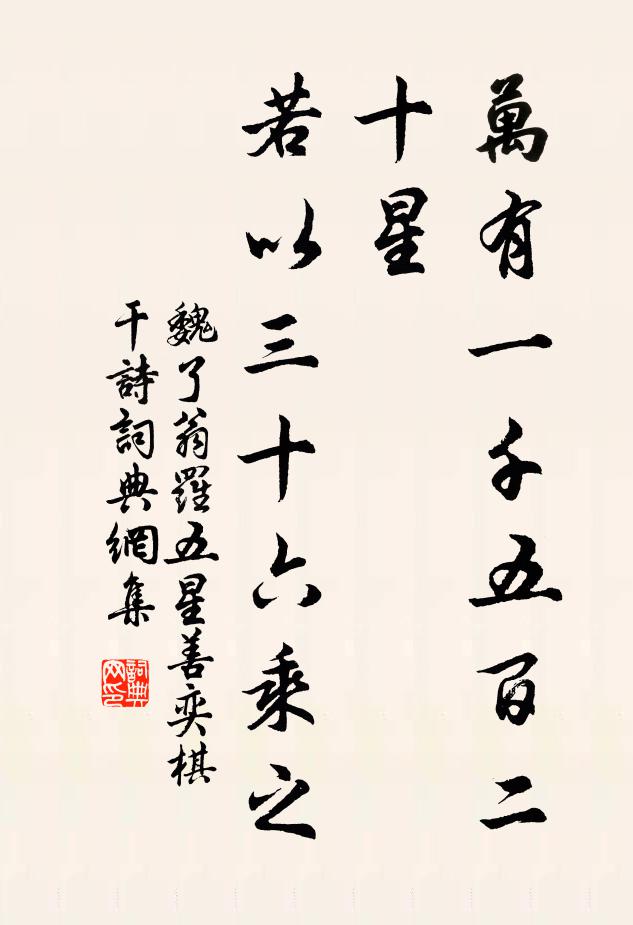 萬有一千五百二
十星
若以三十六乘之
魏了翁羅五星善奕棋
于詩詞典網集
詞典網印